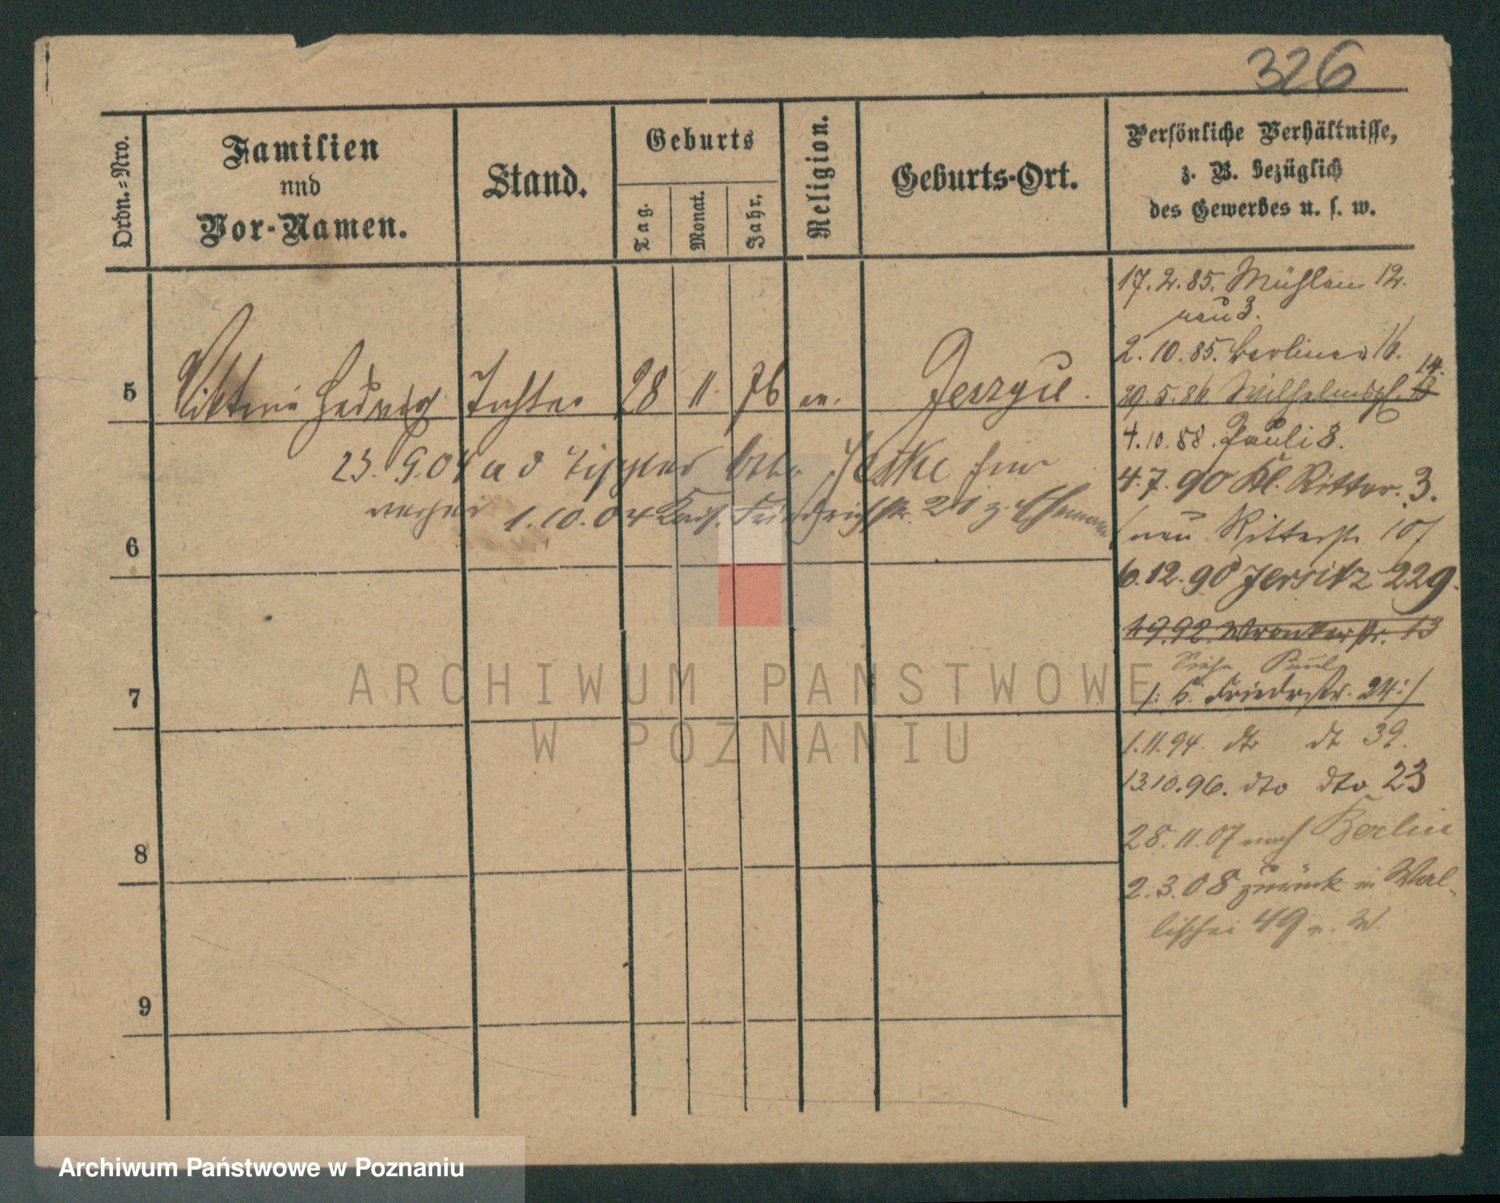 326
Ordn.=Nro.
Familien
und
Vor-Namen.
Stand.
Geburts
Tag.
Monat.
Jahr.
Religion.
Geburts-Ort.
Persönliche Verhältnisse,
z. B. bezüglich
des Gewerbes u. s. w.
17.2.85. Mühlen 12.
neu 3.
2.10.85. Berliner 16.
14.
5 Viktoria Hedwig Tochter 28 11. 76 ev. Jerzyce.
29.5.86 Wilhelmspl.
4.10.88. Pauli 8.
23.9.04 a d Jeske
4.7.90 Kl. Ritter. 3.
1.10.04 Kais. Friedrichstr.
(neu Ritterstr. 10/
6
6.12.90 Jersitz 229.
4.9.92 Wronkerstr. 13
Siehe Paul
7
/: K. Friedrstr. 24:/
1.11.94. dto dt 39.
13.10.96. dto dto 23
28.11.07 nach Berlin
8
2.3.08 zurück in Wal-
lischei 49 v. W.
9
ARCHIWUM PAŃSTWOWE
W POZNANIU
Archiwum Państwowe w Poznaniu